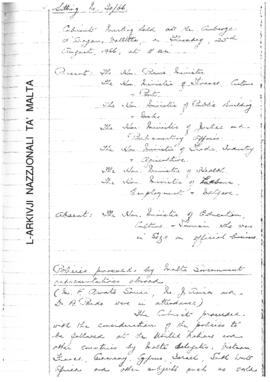 Sitting No 20/66
Cabinet Meeting held at the Auberge
d'Aragon, Valletta on Tuesday, 23rd
August, 1966, at 8 am
Present: The Hon. Prime Minister
The Hon. Minister of Finance, Customs
& Port.
The Hon. Minister of Public Building
& Works
The Hon. Minister of Justice and
Parliamentary Affairs.
The Hon. Minister of Trade, Industry
& Agriculture.
The Hon. Minister of Health.
The Hon. Minister of Labour,
Employment & Welfare.
Absent: The Hon. Minister of Education,
Culture & Tourism who was
in Gozo on official business
Policies proposed by Malta Government
representatives abroad
(Mr. F. Amato Gauci, Mr. J.
Dr A. Pardo were in attendance)
The Cabinet proceeded
with the consideration of the policies to
be followed at the United Nations and
other countries by Malta Delegates, Vietnam
France, Germany, Cyprus, Israel, South West
Africa and other subjects such as
L-ARKIVJI NAZZJONALI TA' MALTA